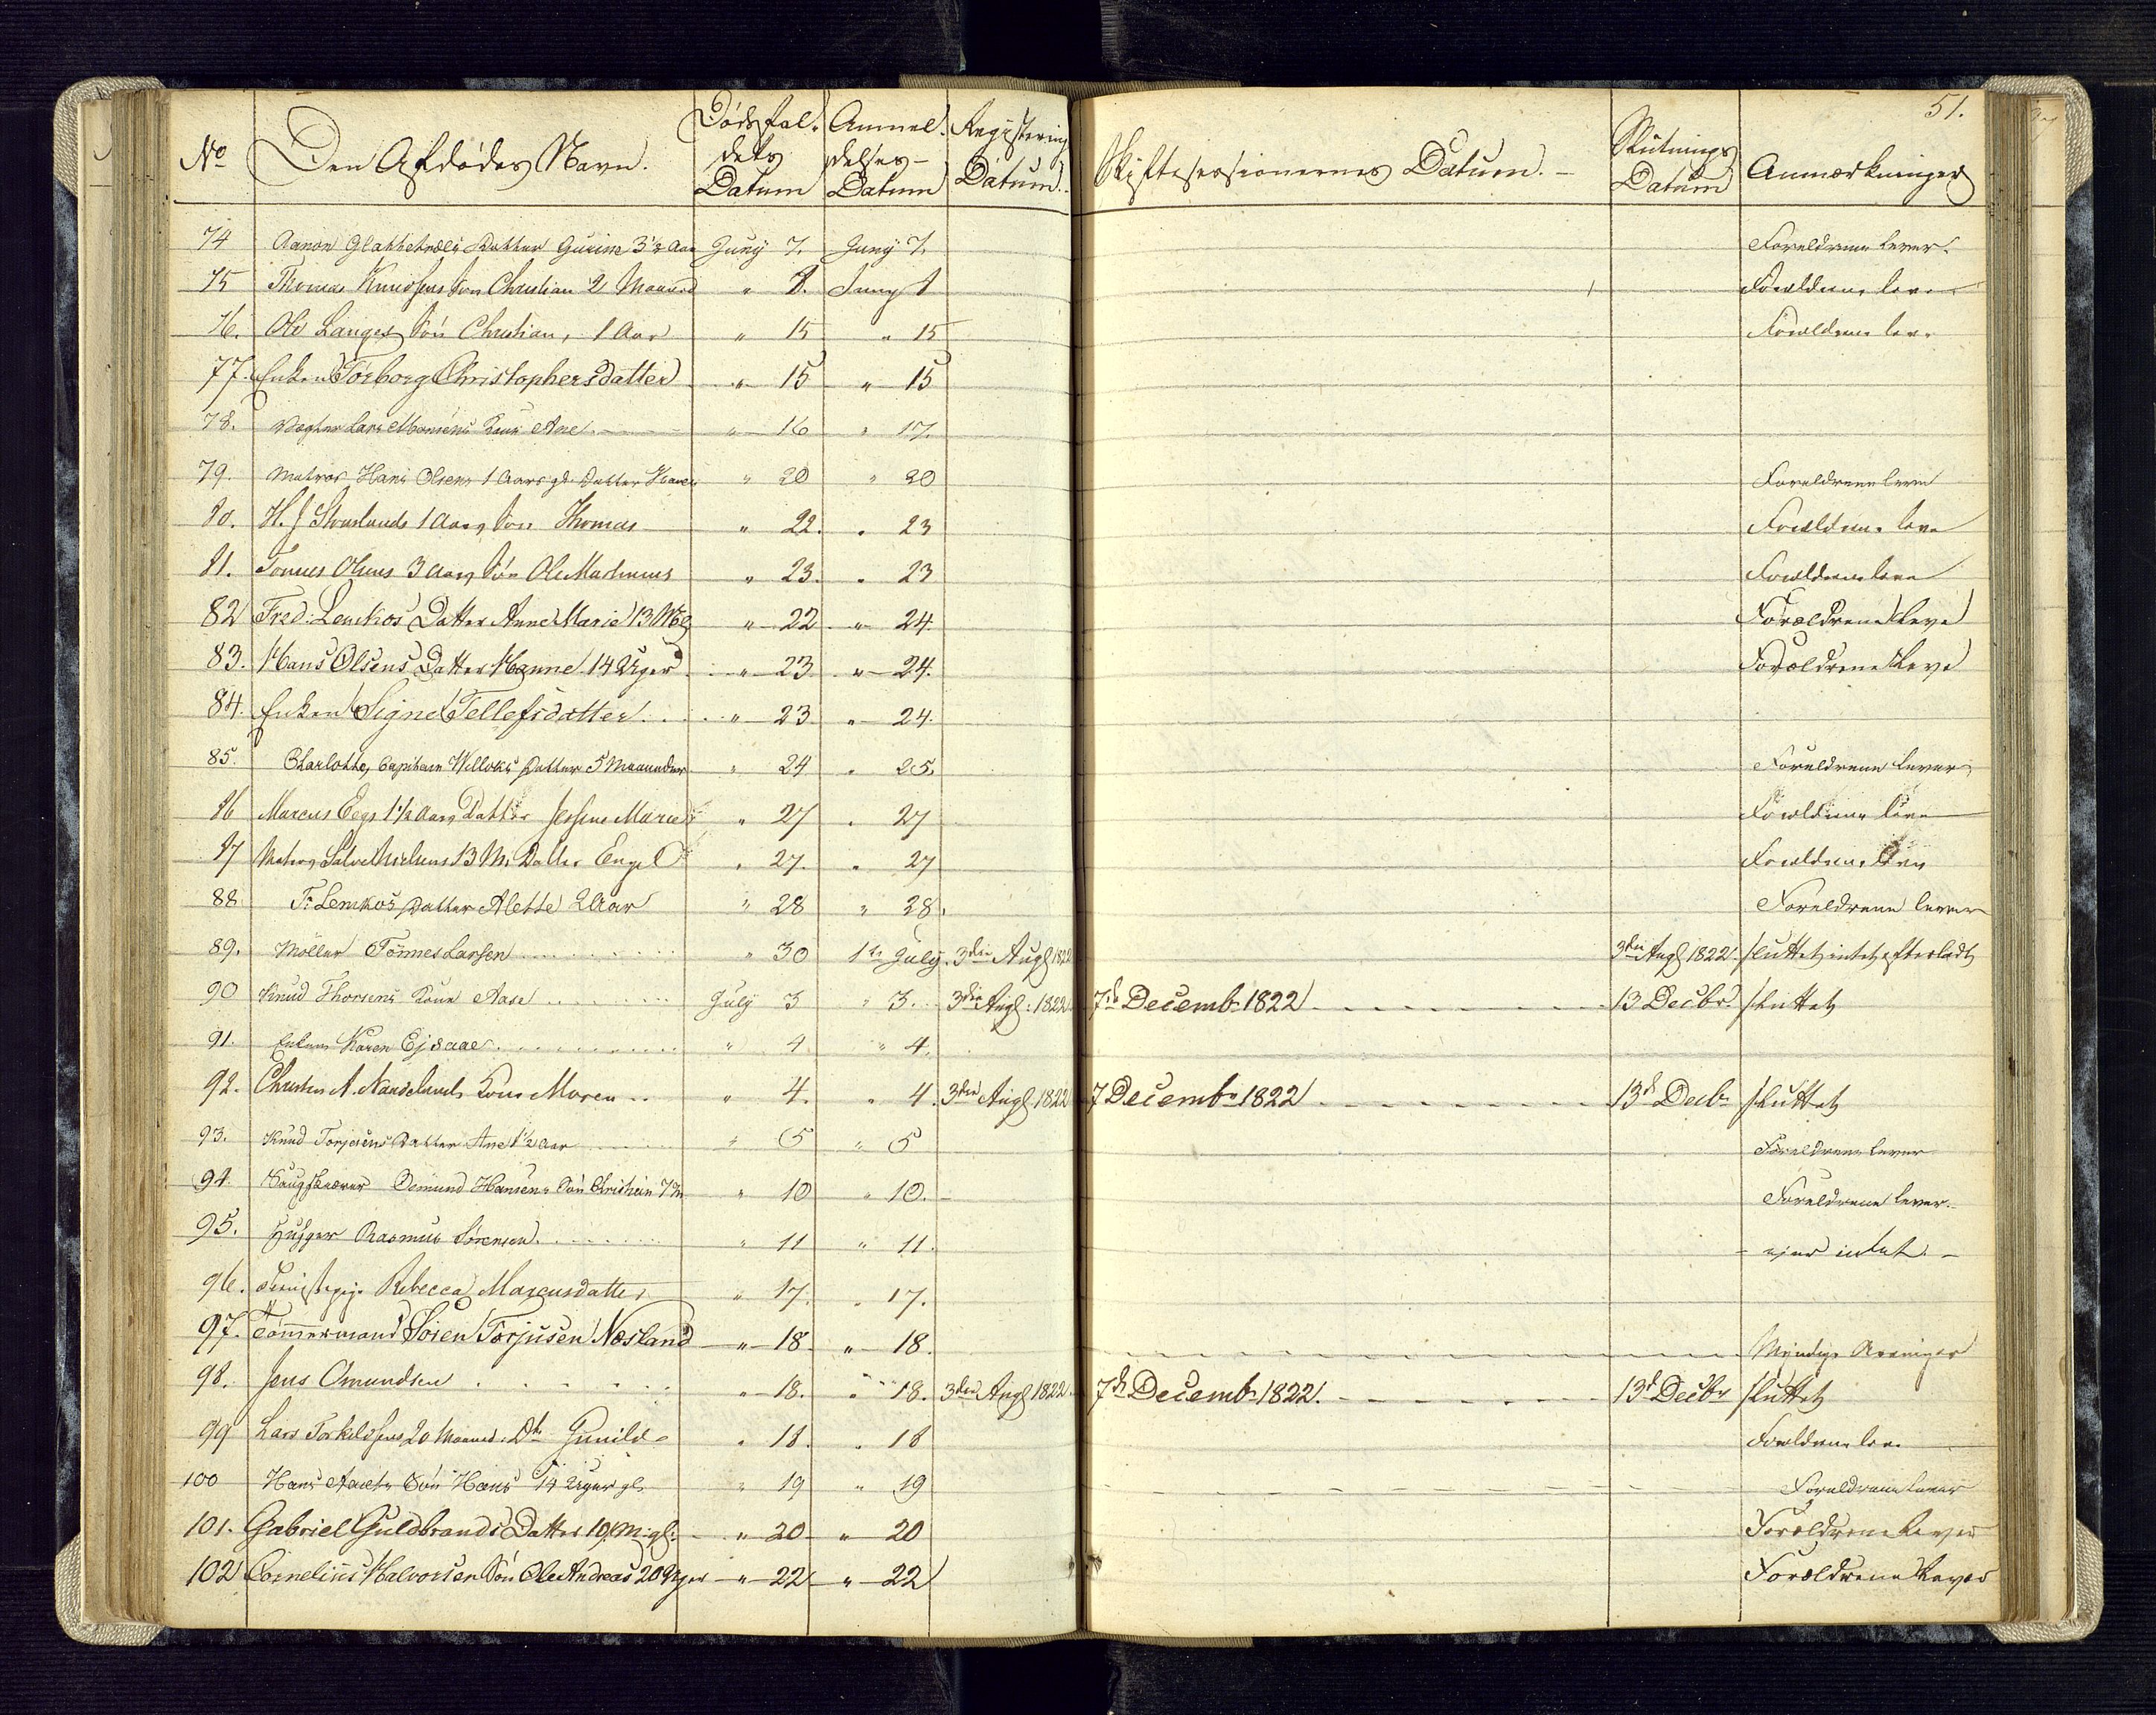 51.
No Den Afdødes Navn. Dødsfal. Anmel. Registering
dets delses-
Datum Datum Datum. Skiftesessionernes Datum. Slutnings Datum Anmærkninger
74 Aanon Glattetræes Datter Gurine 3½ Aar Juny 7. Juny 7. Foreldrene lever.
75 Thomas Knudsens Søn Christian 2 Maaned " 8. Juny 8 Forældrene leve
76. Ole Langes Søn Christian, 1 Aar " 15 " 15 Forældrene leve
77. Enken Torborg Christophersdatter " 15 " 15
78. Vægter Lars Monsens Kone Ane " 16 " 17.
79. Matros Hans Olsens 1 Aars gl. Datter Karen " 20 " 20 Foreldrene leve
80. H. J. 1 Aars Søn Thomas " 22. " 23 Forældrene leve
81. Tønnes Olsens 3 Aars Søn Ole Mathias " 23. " 23 Forældrene leve
82 Fred: Lemkos Datter Anne Marie 13 M. g. " 22 " 24. Forældrene Leve
83. Hans Olsens Datter Hanne 14 Uger " 23 " 24. Forældrene Leve
84. Enken Signe Tellefsdatter " 23 " 24.
85. Charlotte, Capitain Willoks Datter 5 Maaneder " 24 " 25. Foreldrene lever
86 Marcus Eegs 1½ Aars Datter Jessine Marie " 27 " 27 Forældrene leve
87 Matros Salve Nielsens 13 M. Datter Engel " 27. " 27 Forældrene leve
88 Fr Lemkos Datter Alette 2 Aar " 28 " 28. Foreldrene lever
89. Møller Tønnes Larsen " 30 1te July. 3die Augs 1822 3die Augs 1822. sluttet intet efterladt
90 Knud Thorsens Kone Aase July 3 " 3. 3die Augs: 1822 7de Decembr 1822 13 Decbr. sluttet
91. Enken Karen Ejdaae " 4 " 4.
92. Christen A. Nandelands Kone Maren " 4. " 4. 3die Augs 1822 7 Decembr 1822 13de Decbr sluttet
93. Knud Torjusens Datter Ane 1½ Aar " 5 " 5 Foreldrene lever
94. Saugskærer Osmund Hansens Søn Christian 7 M " 10 " 10. Foreldrene lever.
95. Rasmus Sørensen " 11 " 11. - ejer intet. -
96. Tienistepige Rebecca Marcusdatter " 17. " 17.
97. Tømmermand Søren Torjusen Næsland " 18. " 18. Myndige Arvinger
98. Jens Omundsen " 18. " 18. 3die Augs 1822 7de Decembr 1822. 13de Decbr sluttet
99 Lars Torkildsens 20 Maaned. Dtr Gunild " 18. " 18 Forældrene leve
100 Hans Aaets Søn Hans 14 Uger gl. " 19 " 19 Foreldrene lever
101. Gabriel Guldbrands Datter 10 M: gl: " 20 " 20 Forældrene Lever
102 Cornelius Halvorsen Søn Ole Andreas 20 Uger " 22 " 22 Forældrene Lever